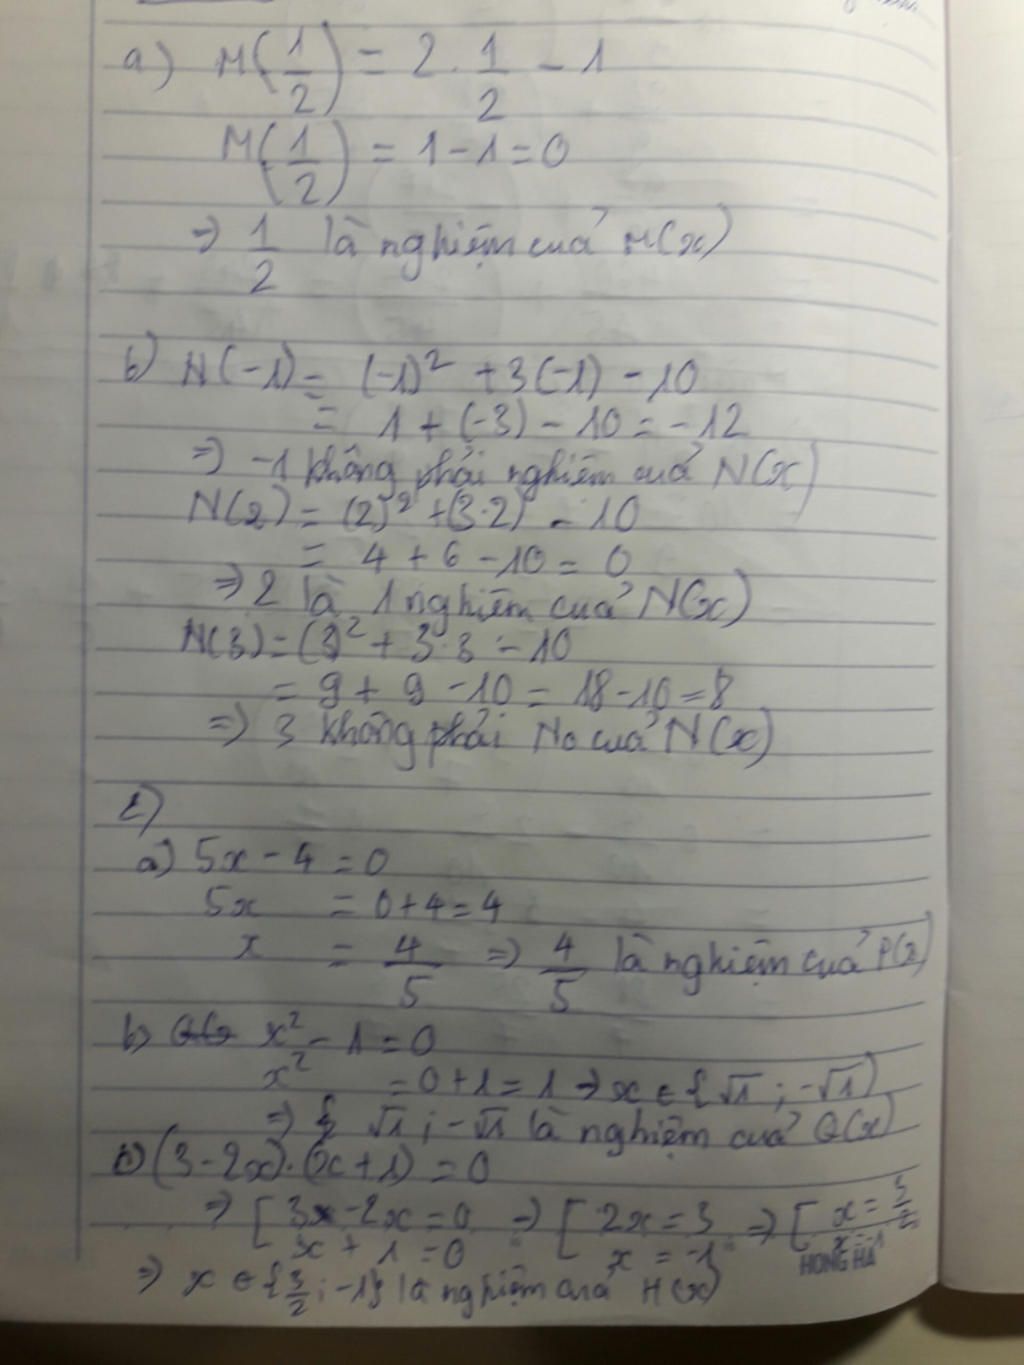 a) M(1/2) = 2 . 1/2 - 1
M(1/2) = 1 - 1 = 0
⇒ 1/2 là nghiệm cuả M(x)
b) N(-1) = (-1)² + 3(-1) - 10
= 1 + (-3) - 10 = -12
⇒ -1 không phải nghiệm cuả N(x)
N(2) = (2)² + (3·2) - 10
= 4 + 6 - 10 = 0
⇒ 2 là 1 nghiệm cuả N(x)
N(3) = (3)² + 3·3 - 10
= 9 + 9 - 10 = 18 - 10 = 8
⇒ 3 không phải No cuả N(x)
2)
a) 5x - 4 = 0
5x = 0 + 4 = 4
x = 4/5 ⇒ 4/5 là nghiệm cuả P(x)
b) x² - 1 = 0
x² = 0 + 1 = 1 ⇒ x ∈ {√1 ; -√1}
⇒ √1 ; -√1 là nghiệm cuả Q(x)
c) (3 - 2x) . (x + 1) = 0
⇒ [ 3 - 2x = 0 ⇒ [ 2x = 3 ⇒ [ x = 3/2
x + 1 = 0 x = -1 x = -1
HONG HA
⇒ x ∈ {3/2 ; -1} là nghiệm cuả H(x)